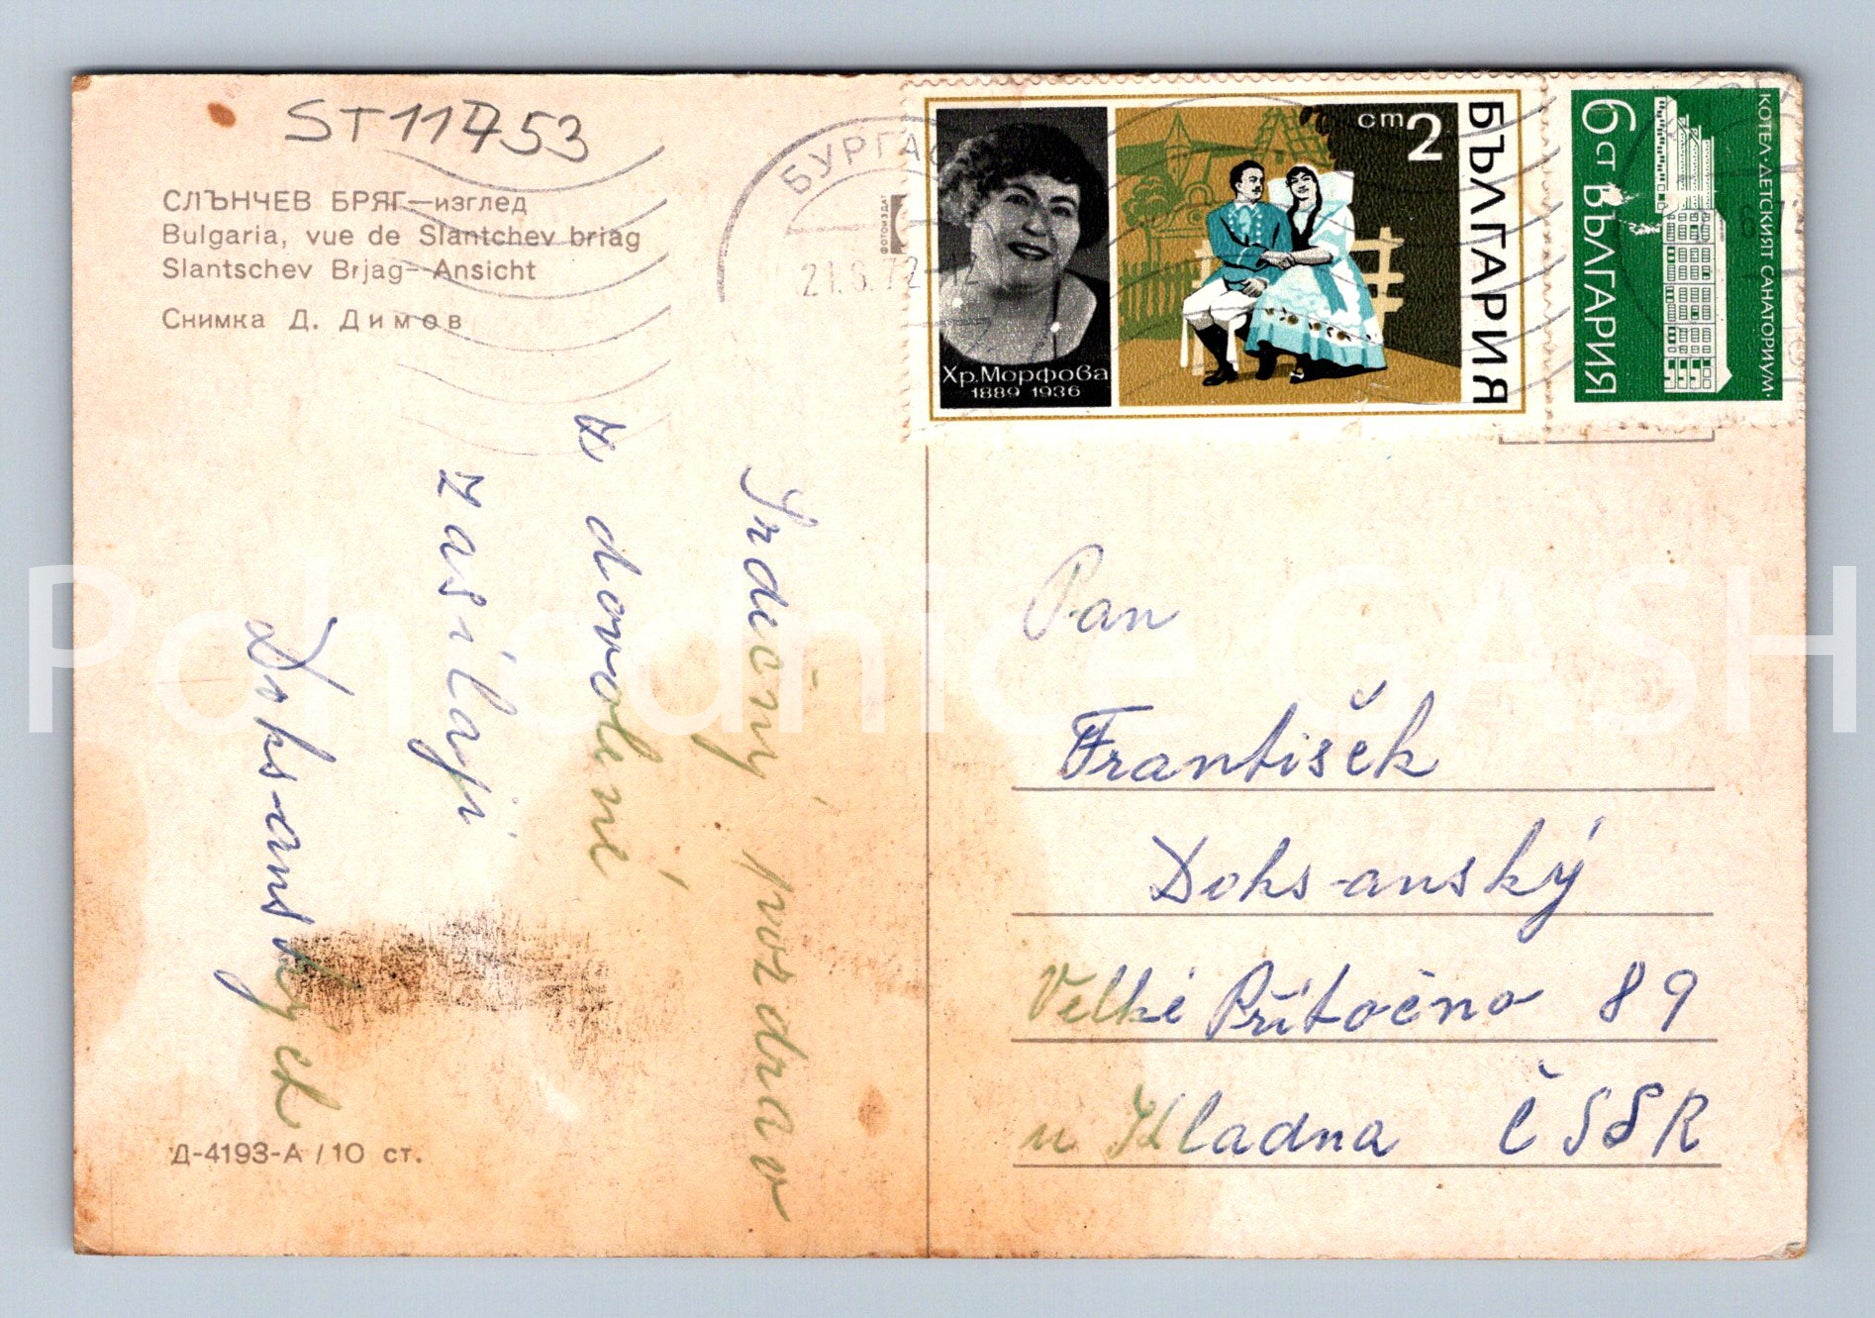 ST11753
СЛЪНЧЕВ БРЯГ—изглед
Bulgaria, vue de Slantchev briag
Slantschev Brjag—Ansicht
Снимка Д. Димов
Srdečný pozdrav
z dovolené
zasílají
Doksanských
Д-4193-А / 10 ст.
БУРГАС
21.8.72-12
ФОТОИЗДАТ
Хр. Морфова
1889 1936
ст 2
БЪЛГАРИЯ
6 СТ БЪЛГАРИЯ
КОТЕЛ·ДЕТСКИЯТ САНАТОРИУМ·
Pan
František
Doksanský
Velké Přítočno 89
u Kladna ČSSR
Pohlednice GASH